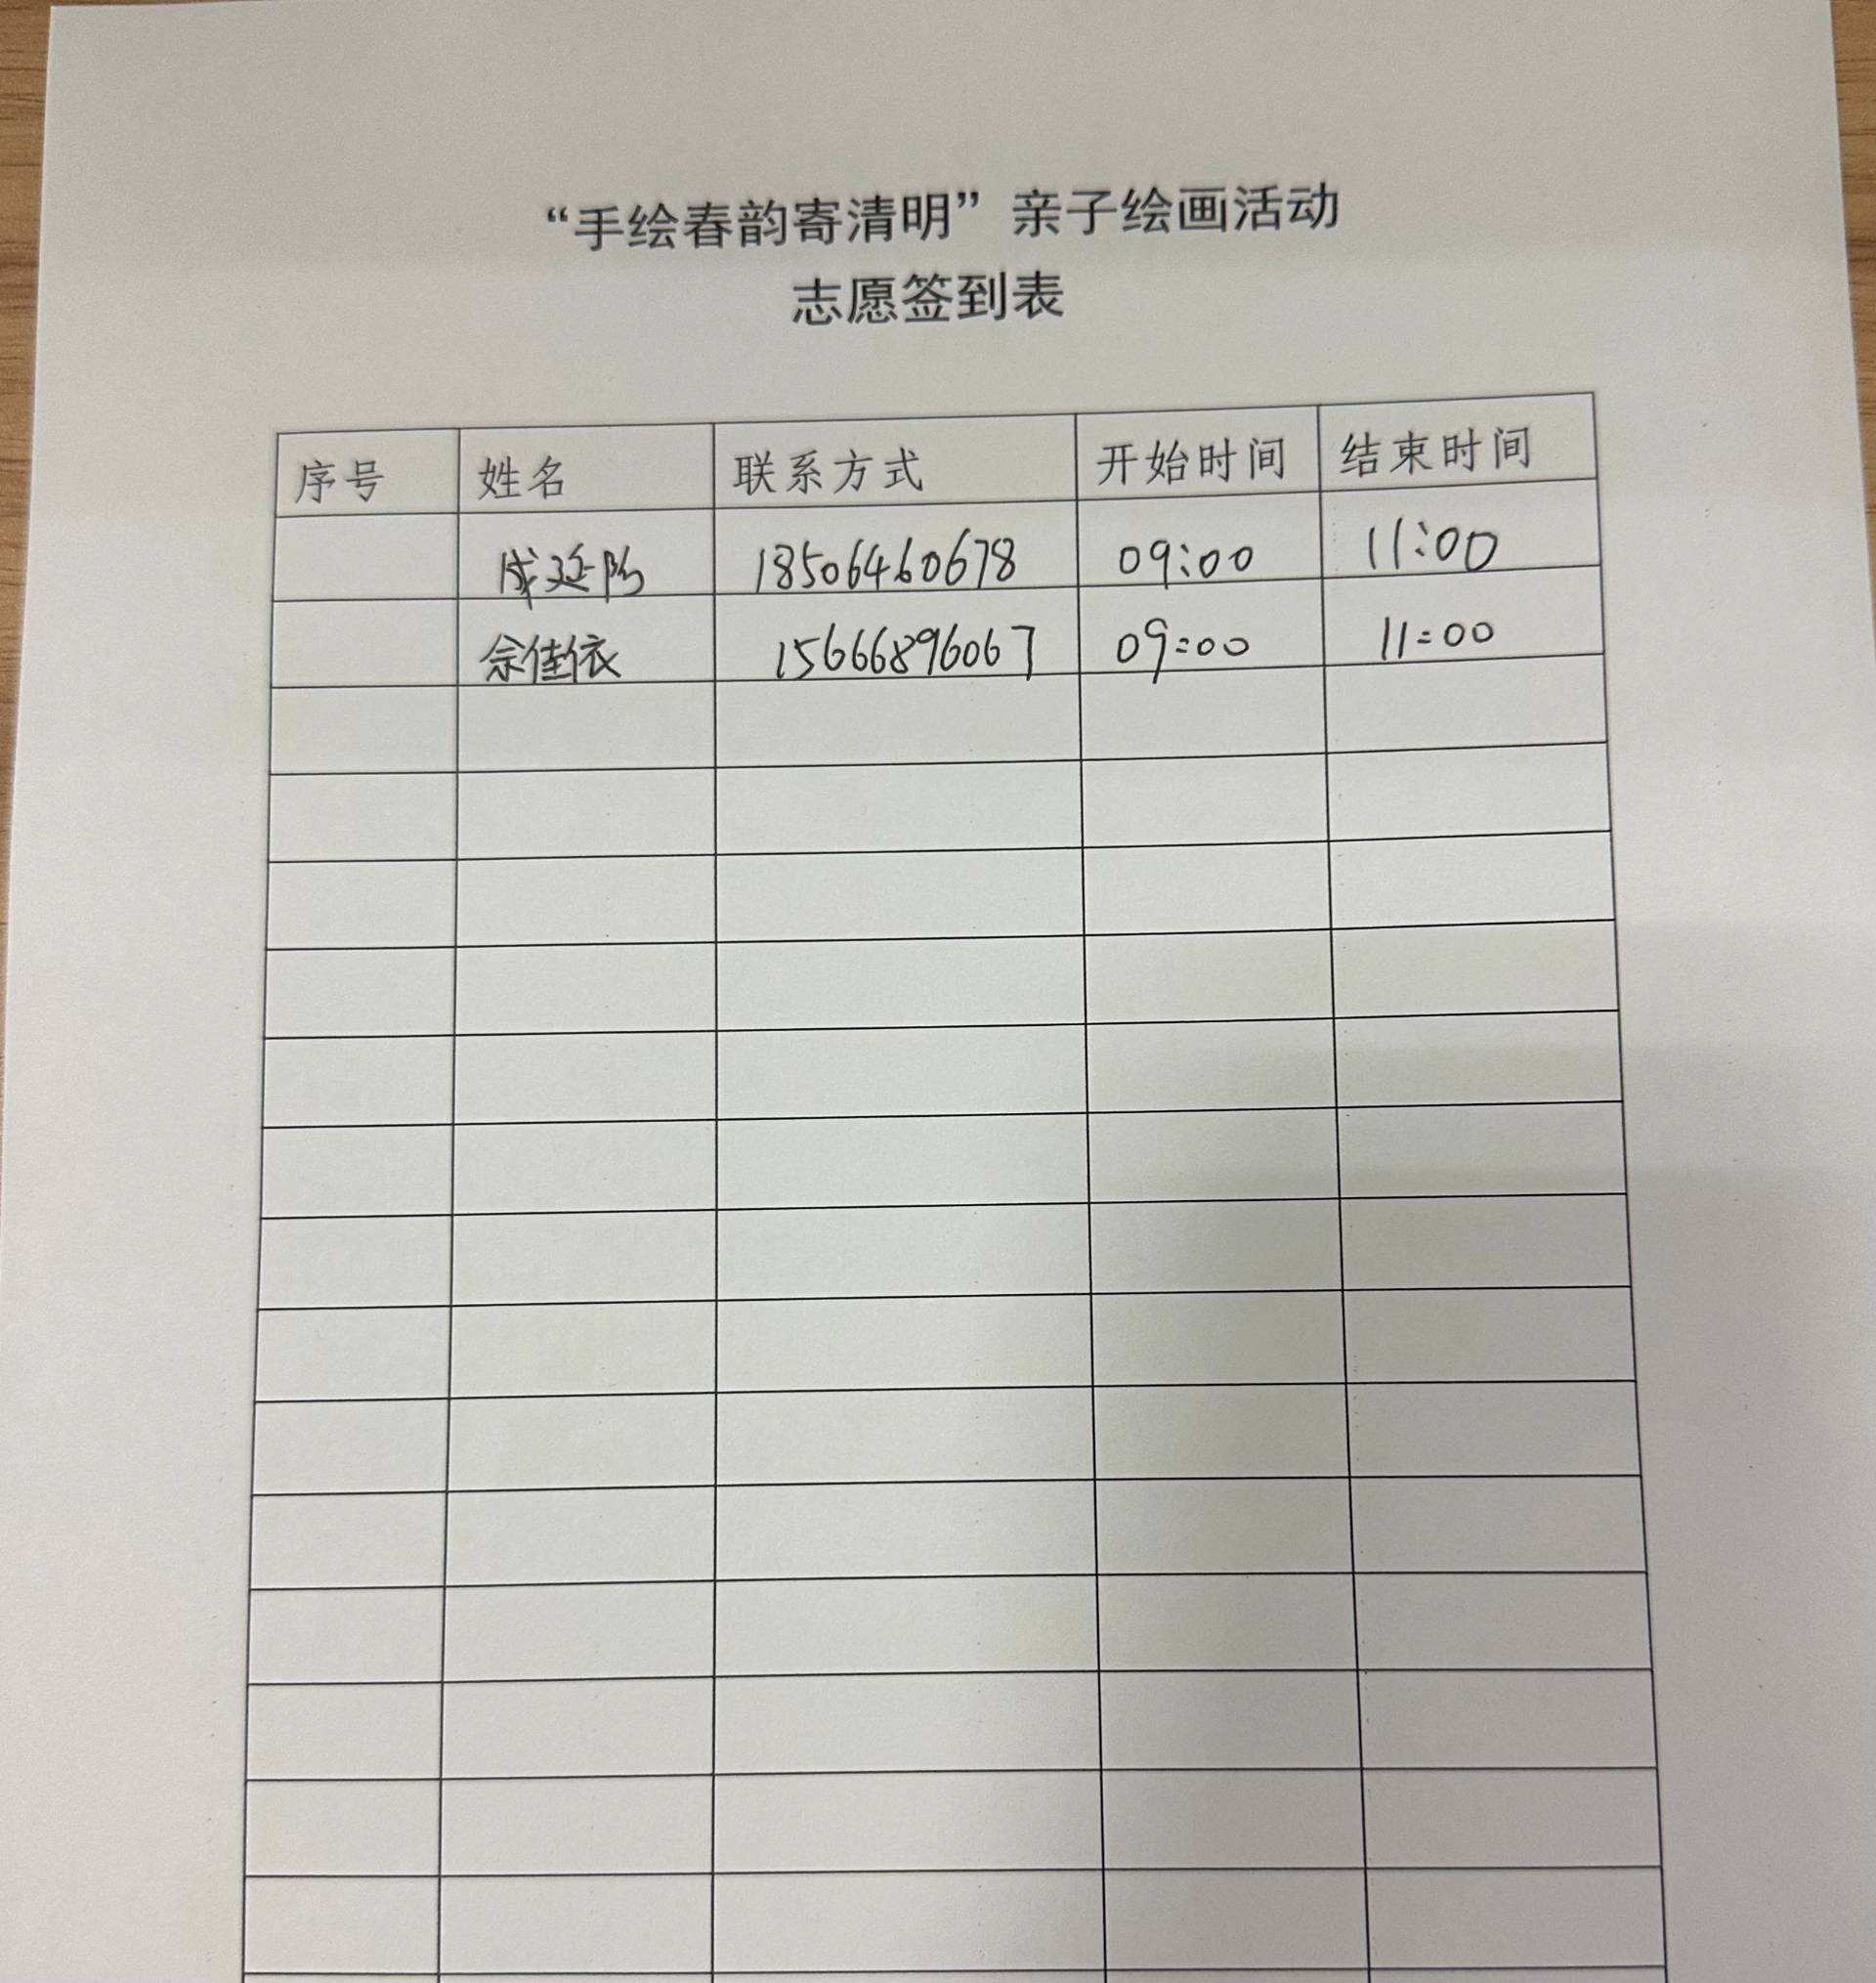 “手绘春韵寄清明”亲子绘画活动
志愿签到表
序号 姓名 联系方式 开始时间 结束时间
18506460678 09:00 11:00
佘佳依 15666896067 09:00 11:00